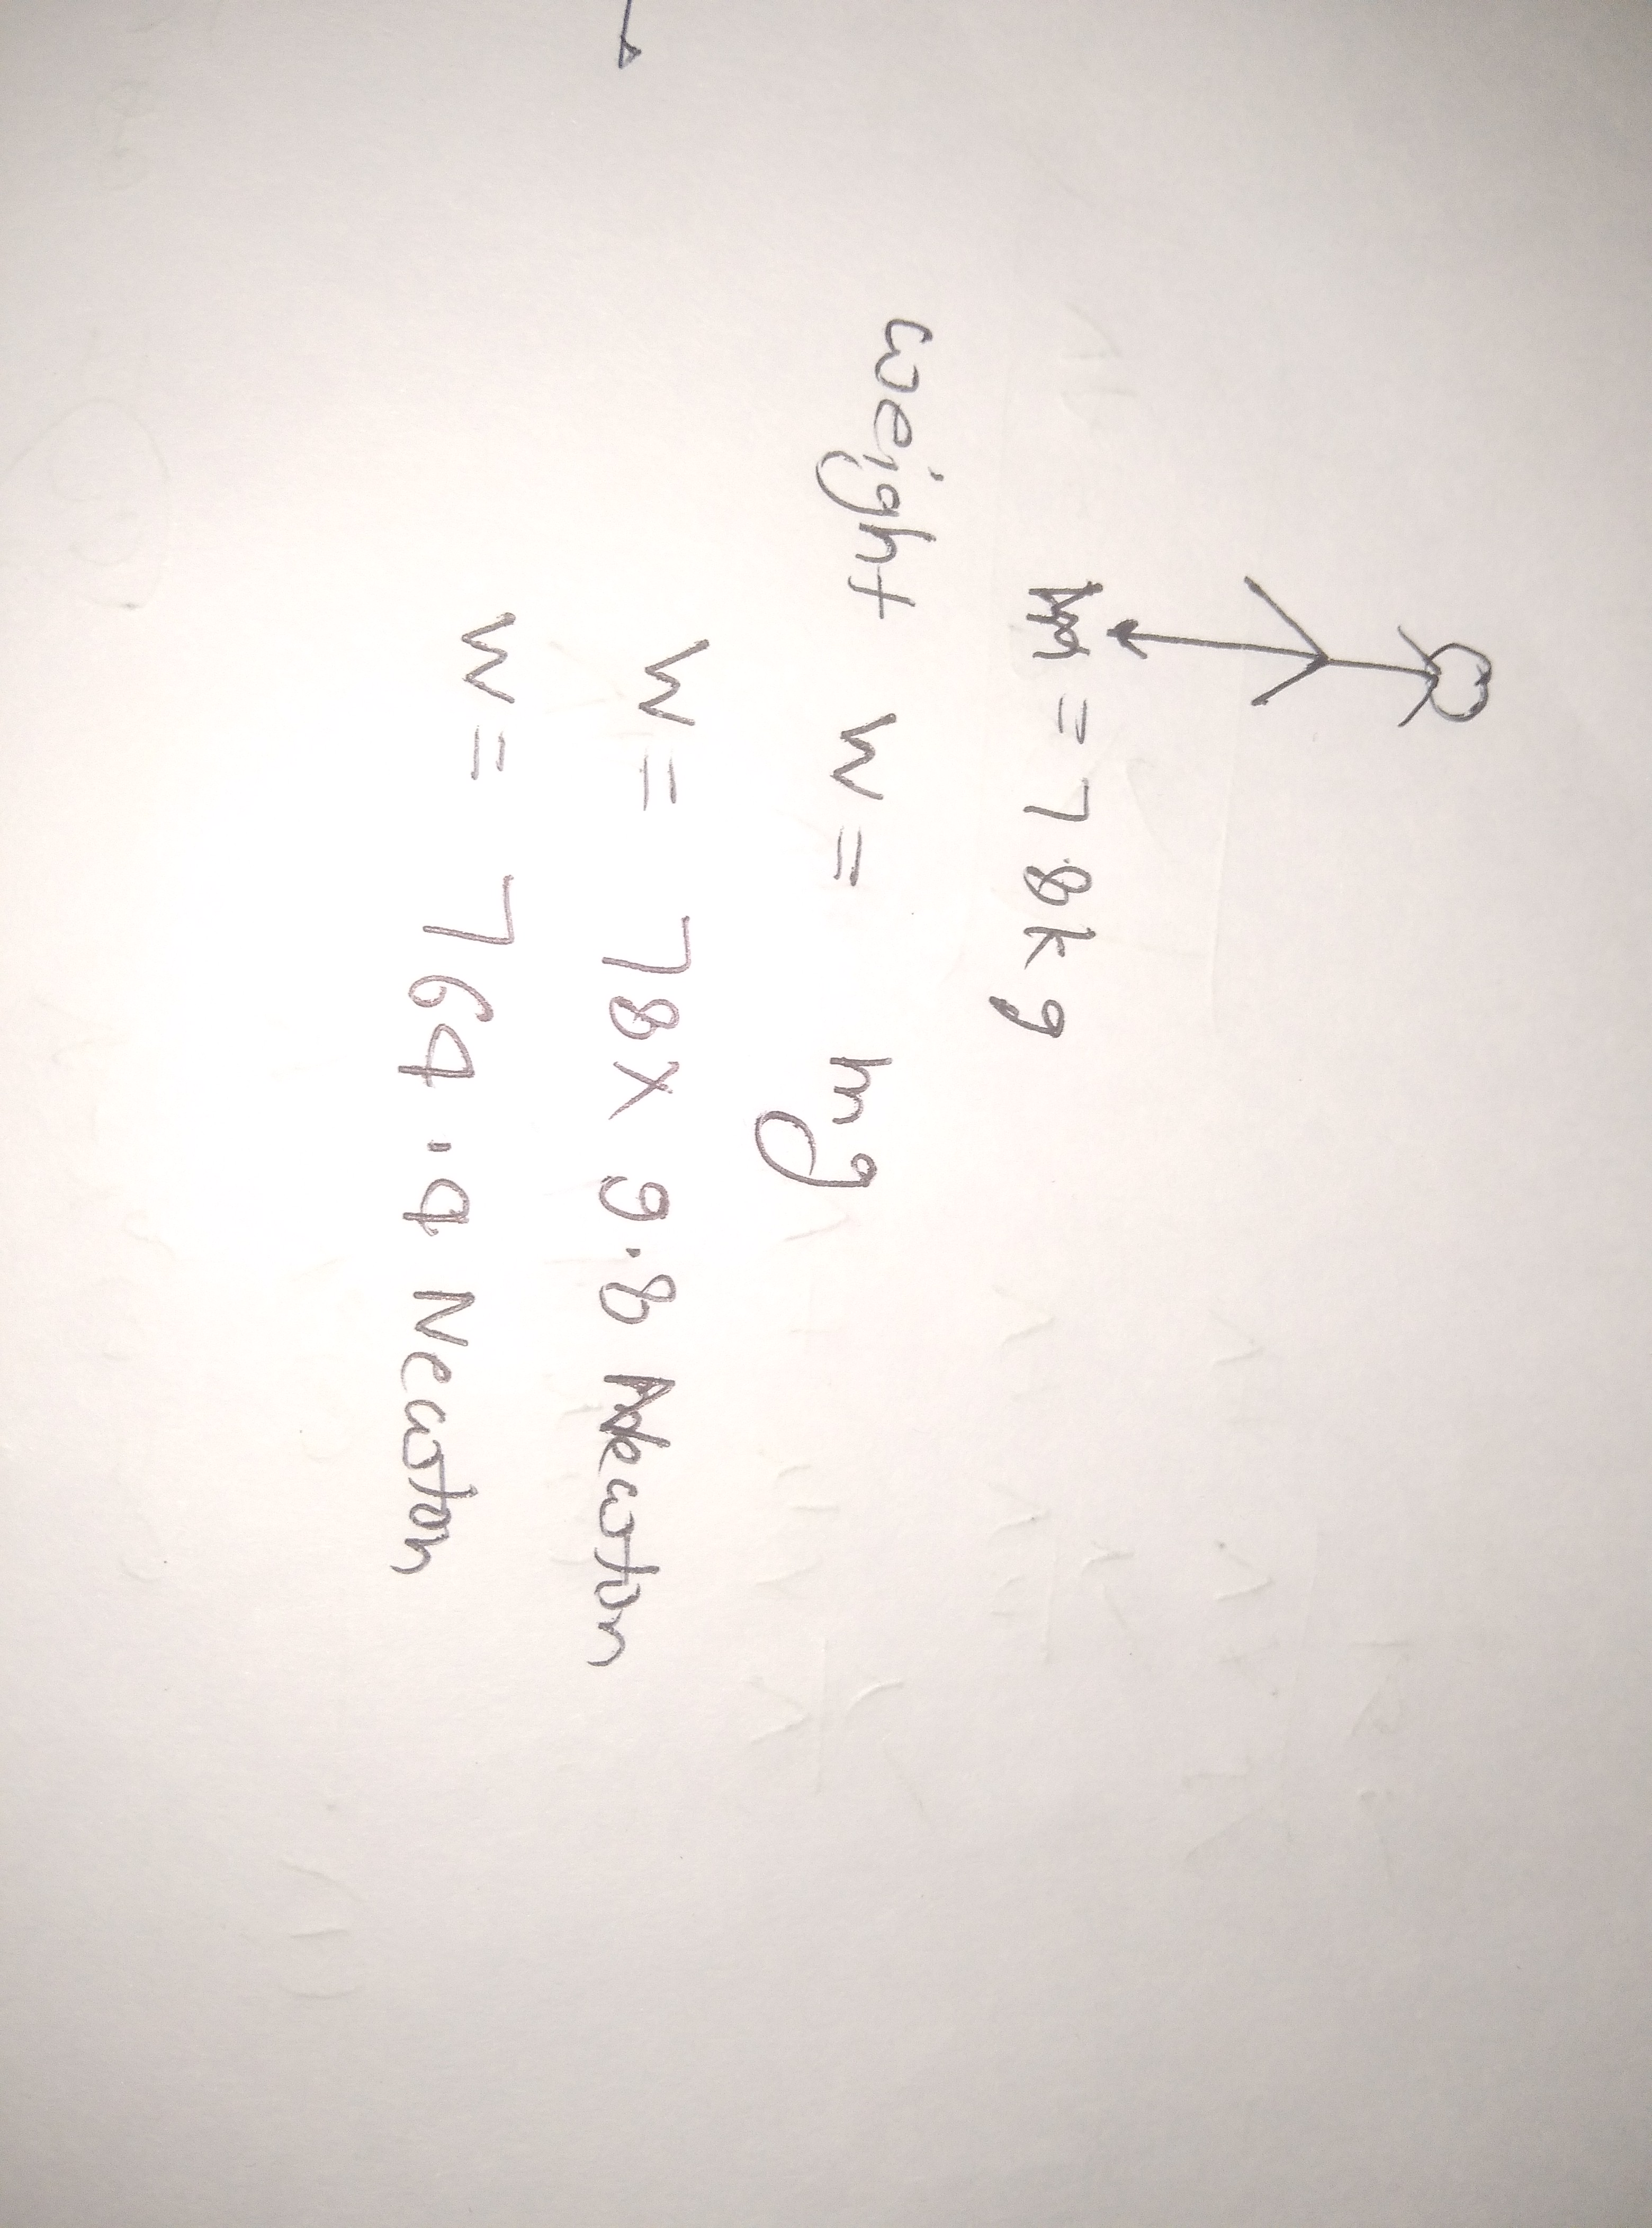 m = 78kg
weight W = mg
W = 78 x 9.8 Newton
W = 764.4 Newton